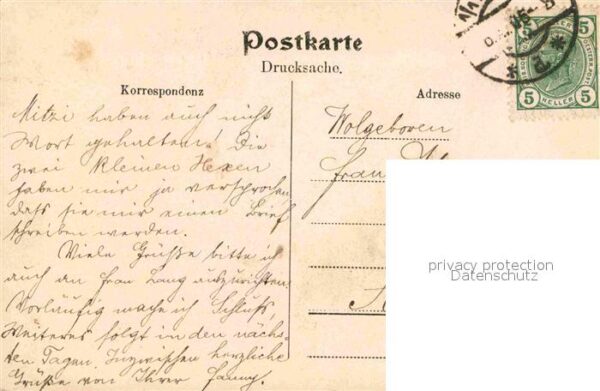 Postkarte
Drucksache.
Korrespondenz
Adresse
5 5
5 HELLER 5
Mitzi haben auch nicht
Wort gehalten! Die
zwei kleinen Hexen
haben mir ja versprochen,
dass sie mir einen Brief
schreiben werden.
Viele Grüße bitte ich
auch an Frau Lang auszurichten.
Vorläufig mache ich Schluß,
Weiteres folgt in den näch-
sten Tagen. Inzwischen herzliche
Grüße von Ihrer Fanny.
Wolgeboren
Frau
privacy protection
Datenschutz